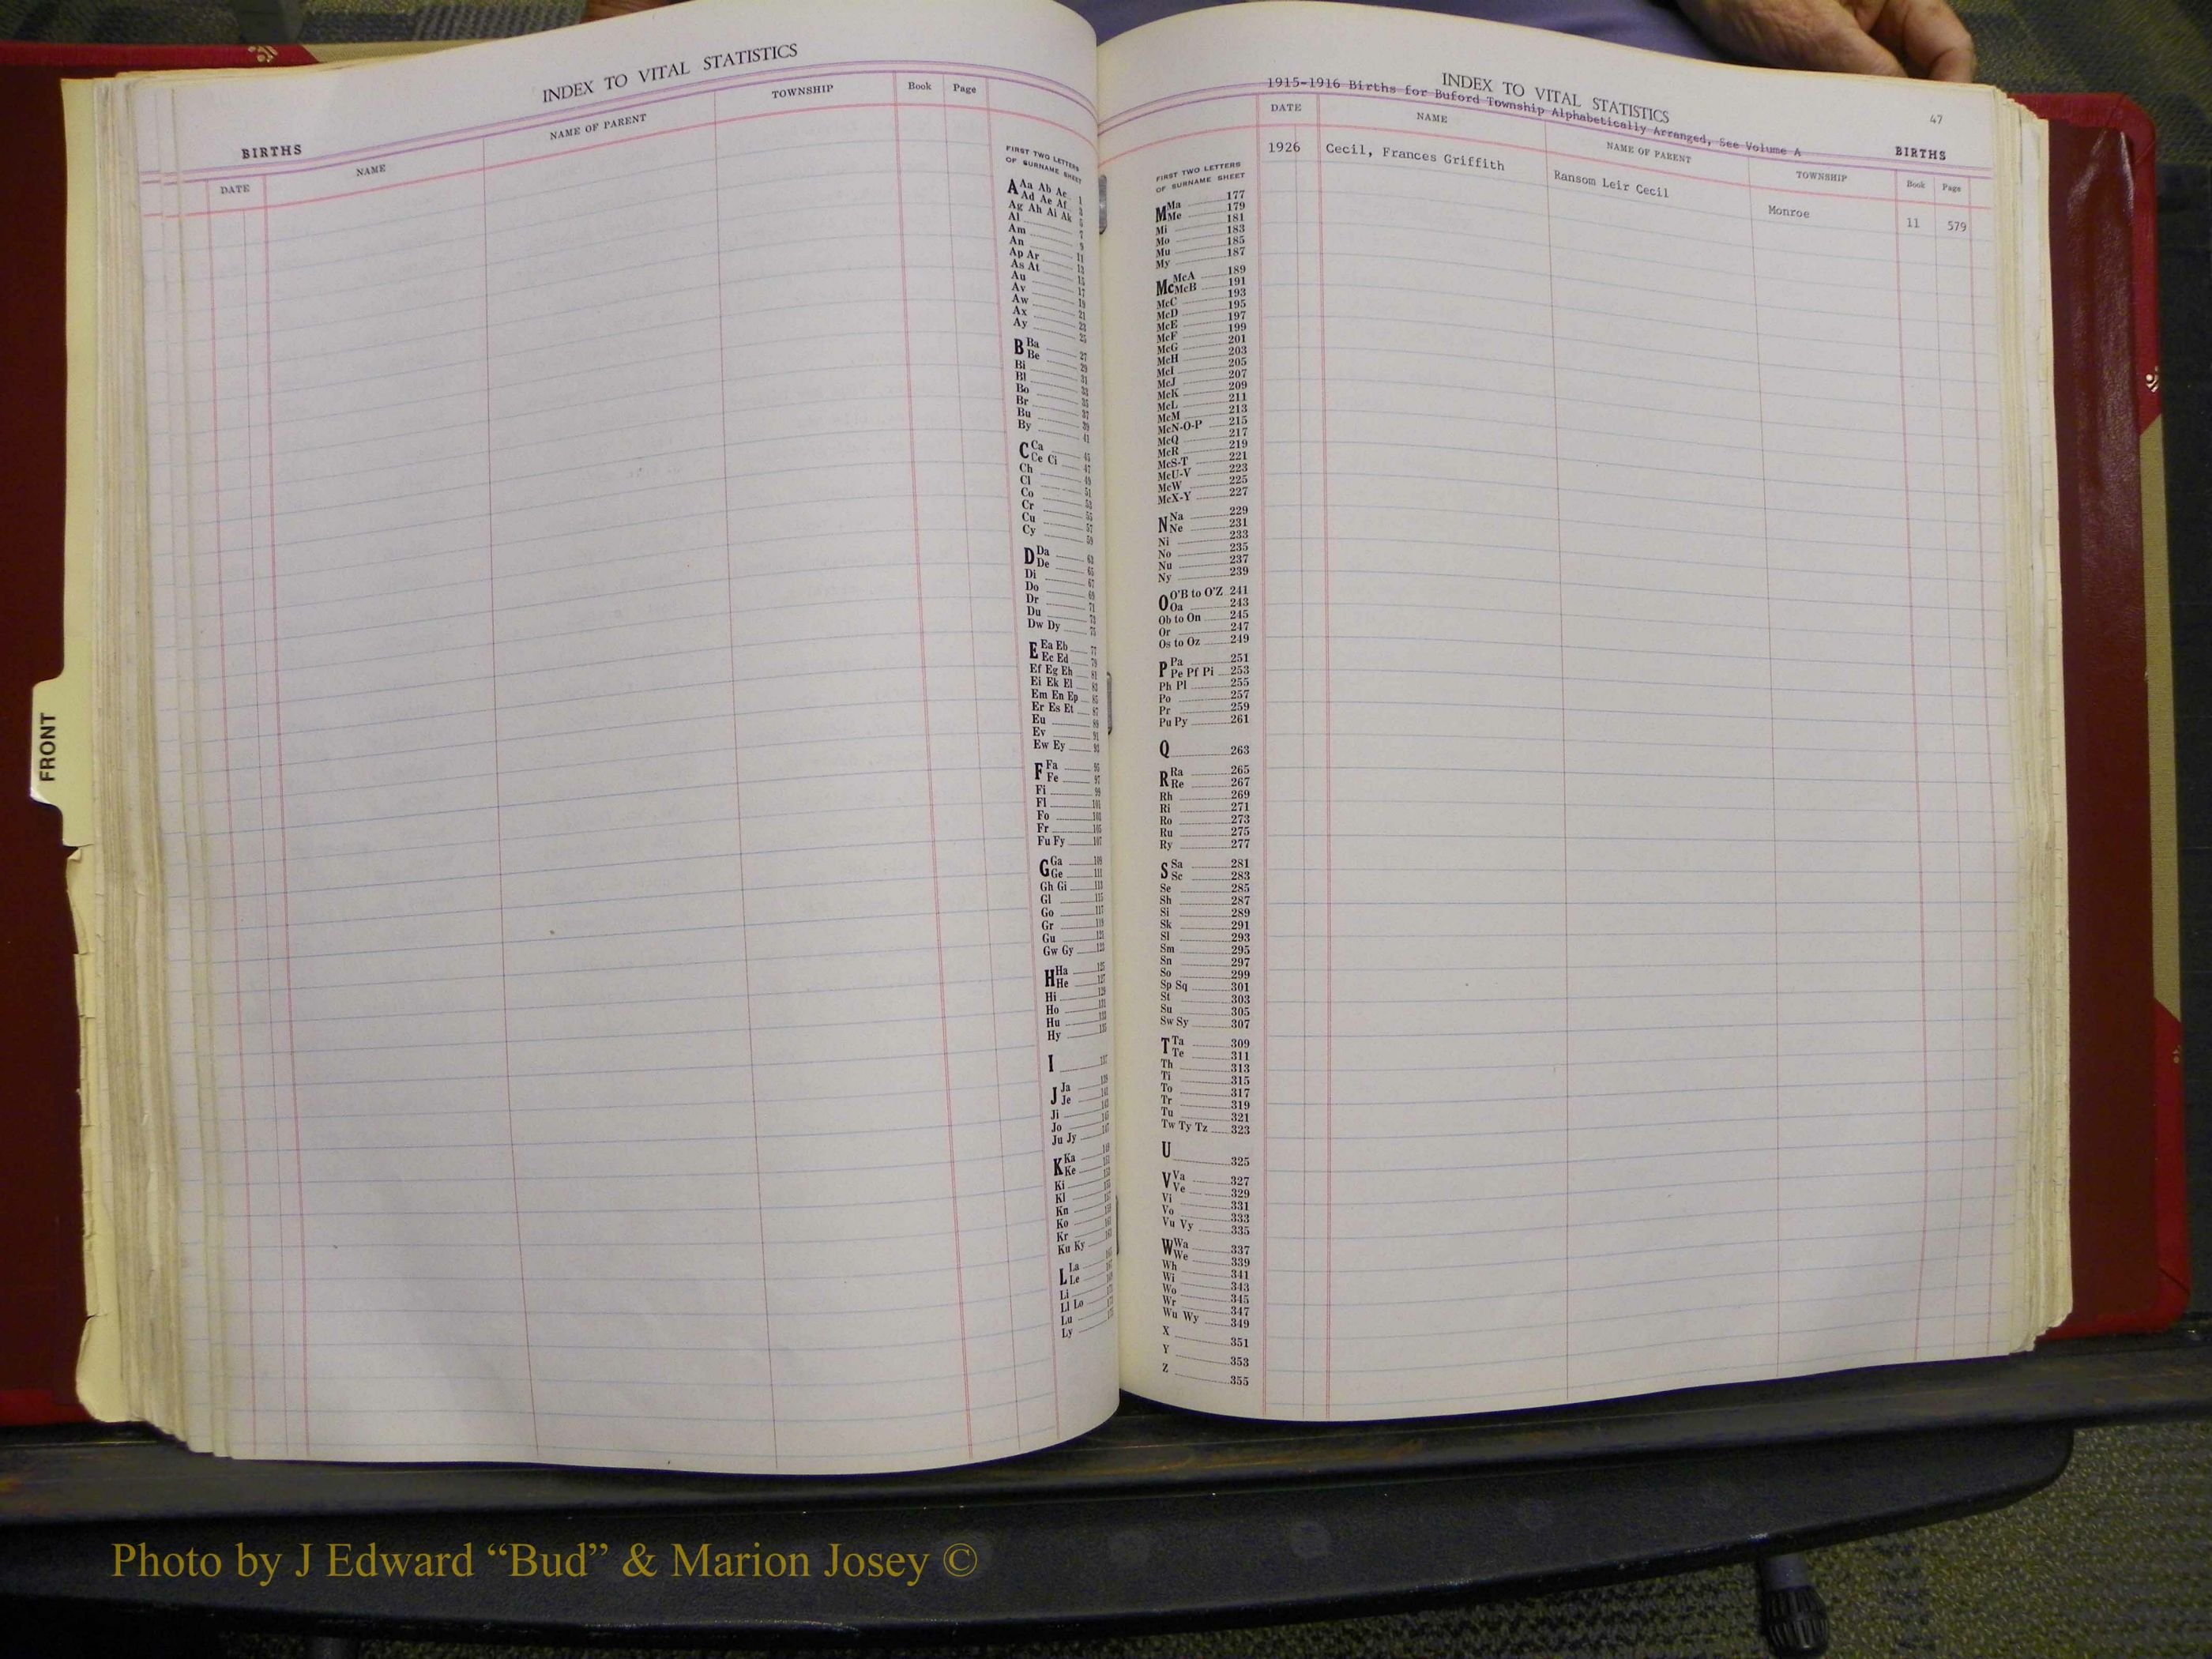 INDEX TO VITAL STATISTICS
BIRTHS
DATE NAME NAME OF PARENT TOWNSHIP Book Page
FIRST TWO LETTERS
OF SURNAME SHEET
A Aa Ab Ac 1
Ad Ae Af 3
Ag Ah Ai Ak 5
Al 7
Am 9
An 11
Ap Ar 13
As At 15
Au 17
Av 19
Aw 21
Ax 23
Ay 25
B Ba 27
Be 29
Bi 31
Bl 33
Bo 35
Br 37
Bu 39
By 41
C Ca 45
Ce Ci 47
Ch 49
Cl 51
Co 53
Cr 55
Cu 57
Cy 59
D Da 63
De 65
Di 67
Do 69
Dr 71
Du 73
Dw Dy 75
E Ea Eb 77
Ec Ed 79
Ef Eg Eh 81
Ei Ek El 83
Em En Ep 85
Er Es Et 87
Eu 89
Ev 91
Ew Ey 93
F Fa 95
Fe 97
Fi 99
Fl 101
Fo 103
Fr 105
Fu Fy 107
G Ga 109
Ge 111
Gh Gi 113
Gl 115
Go 117
Gr 119
Gu 121
Gw Gy 123
H Ha 125
He 127
Hi 129
Ho 131
Hu 133
Hy 135
I 137
J Ja 139
Je 141
Ji 143
Jo 145
Ju Jy 147
K Ka 149
Ke 151
Ki
Kl
Kn
Ko
Kr
Ku Ky
L La
Le
Li
Ll Lo
Lu
Ly
FRONT
INDEX TO VITAL STATISTICS
1915-1916 Births for Buford Township Alphabetically Arranged, See Volume A
47
BIRTHS
DATE NAME NAME OF PARENT TOWNSHIP Book Page
1926 Cecil, Frances Griffith Ransom Leir Cecil Monroe 11 579
FIRST TWO LETTERS
OF SURNAME SHEET
M Ma 177
Me 179
Mi 181
Mo 183
Mu 185
My 187
Mc McA 189
McB 191
McC 193
McD 195
McE 197
McF 199
McG 201
McH 203
McI 205
McJ 207
McK 209
McL 211
McM 213
McN-O-P 215
McQ 217
McR 219
McS-T 221
McU-V 223
McW 225
McX-Y 227
N Na 229
Ne 231
Ni 233
No 235
Nu 237
Ny 239
O O'B to O'Z 241
Oa 243
Ob to On 245
Or 247
Os to Oz 249
P Pa 251
Pe Pf Pi 253
Ph Pl 255
Po 257
Pr 259
Pu Py 261
Q 263
R Ra 265
Re 267
Rh 269
Ri 271
Ro 273
Ru 275
Ry 277
S Sa 281
Sc 283
Se 285
Sh 287
Si 289
Sk 291
Sl 293
Sm 295
Sn 297
So 299
Sp Sq 301
St 303
Su 305
Sw Sy 307
T Ta 309
Te 311
Th 313
Ti 315
To 317
Tr 319
Tu 321
Tw Ty Tz 323
U 325
V Va 327
Ve 329
Vi 331
Vo 333
Vu Vy 335
W Wa 337
We 339
Wh 341
Wi 343
Wo 345
Wr 347
Wu Wy 349
X 351
Y 353
Z 355
Photo by J Edward “Bud” & Marion Josey ©